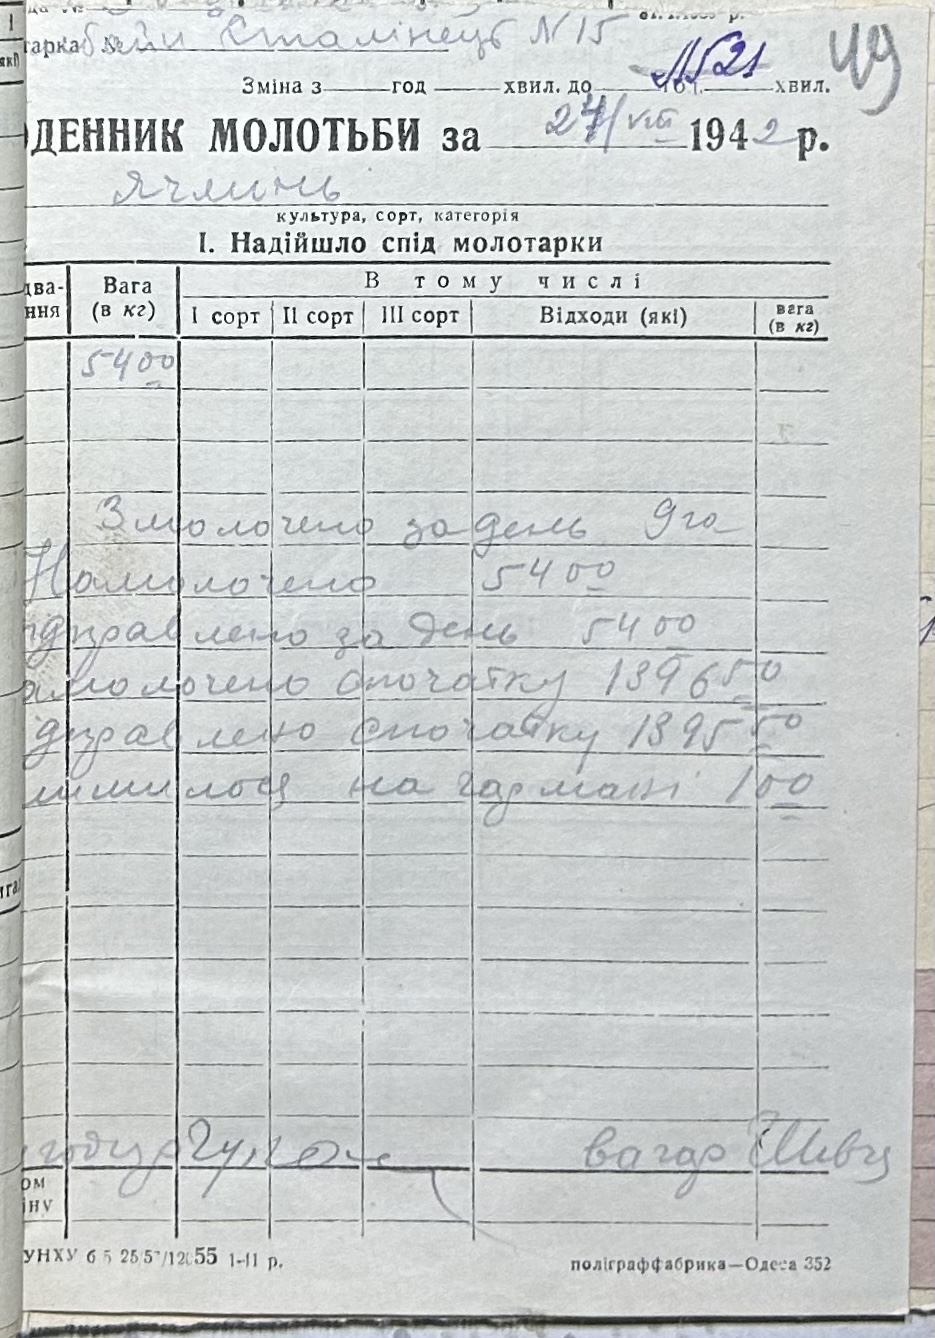 49
арка комбайн Сталінець N 15
N 21
Зміна з год хвил. до год. хвил.
ОДЕННИК МОЛОТЬБИ за 24/VIII 1942 р.
Ячмінь
культура, сорт, категорія
I. Надійшло спід молотарки
Вага (в кг)
В тому числі
I сорт II сорт III сорт Відходи (які) вага (в кг)
5400
Змолочено за день 9 га
Намолочено 5400
ідправлено за день 5400
амолочено спочатку 139650
ідправлено спочатку 139550
лишилося на гармані 100
вагар Швец
ом
іну
УНХУ 55 1-II р.
поліграффабрика—Одеса 352